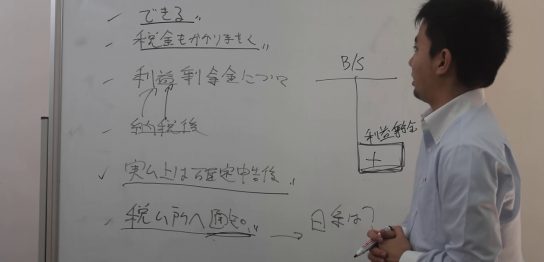 できる
税金もかかりません
利益剰余金について
納税後
実ム上は確定申告後
税ム所へ
→ 日系は?
B/S
利益剰余金
+